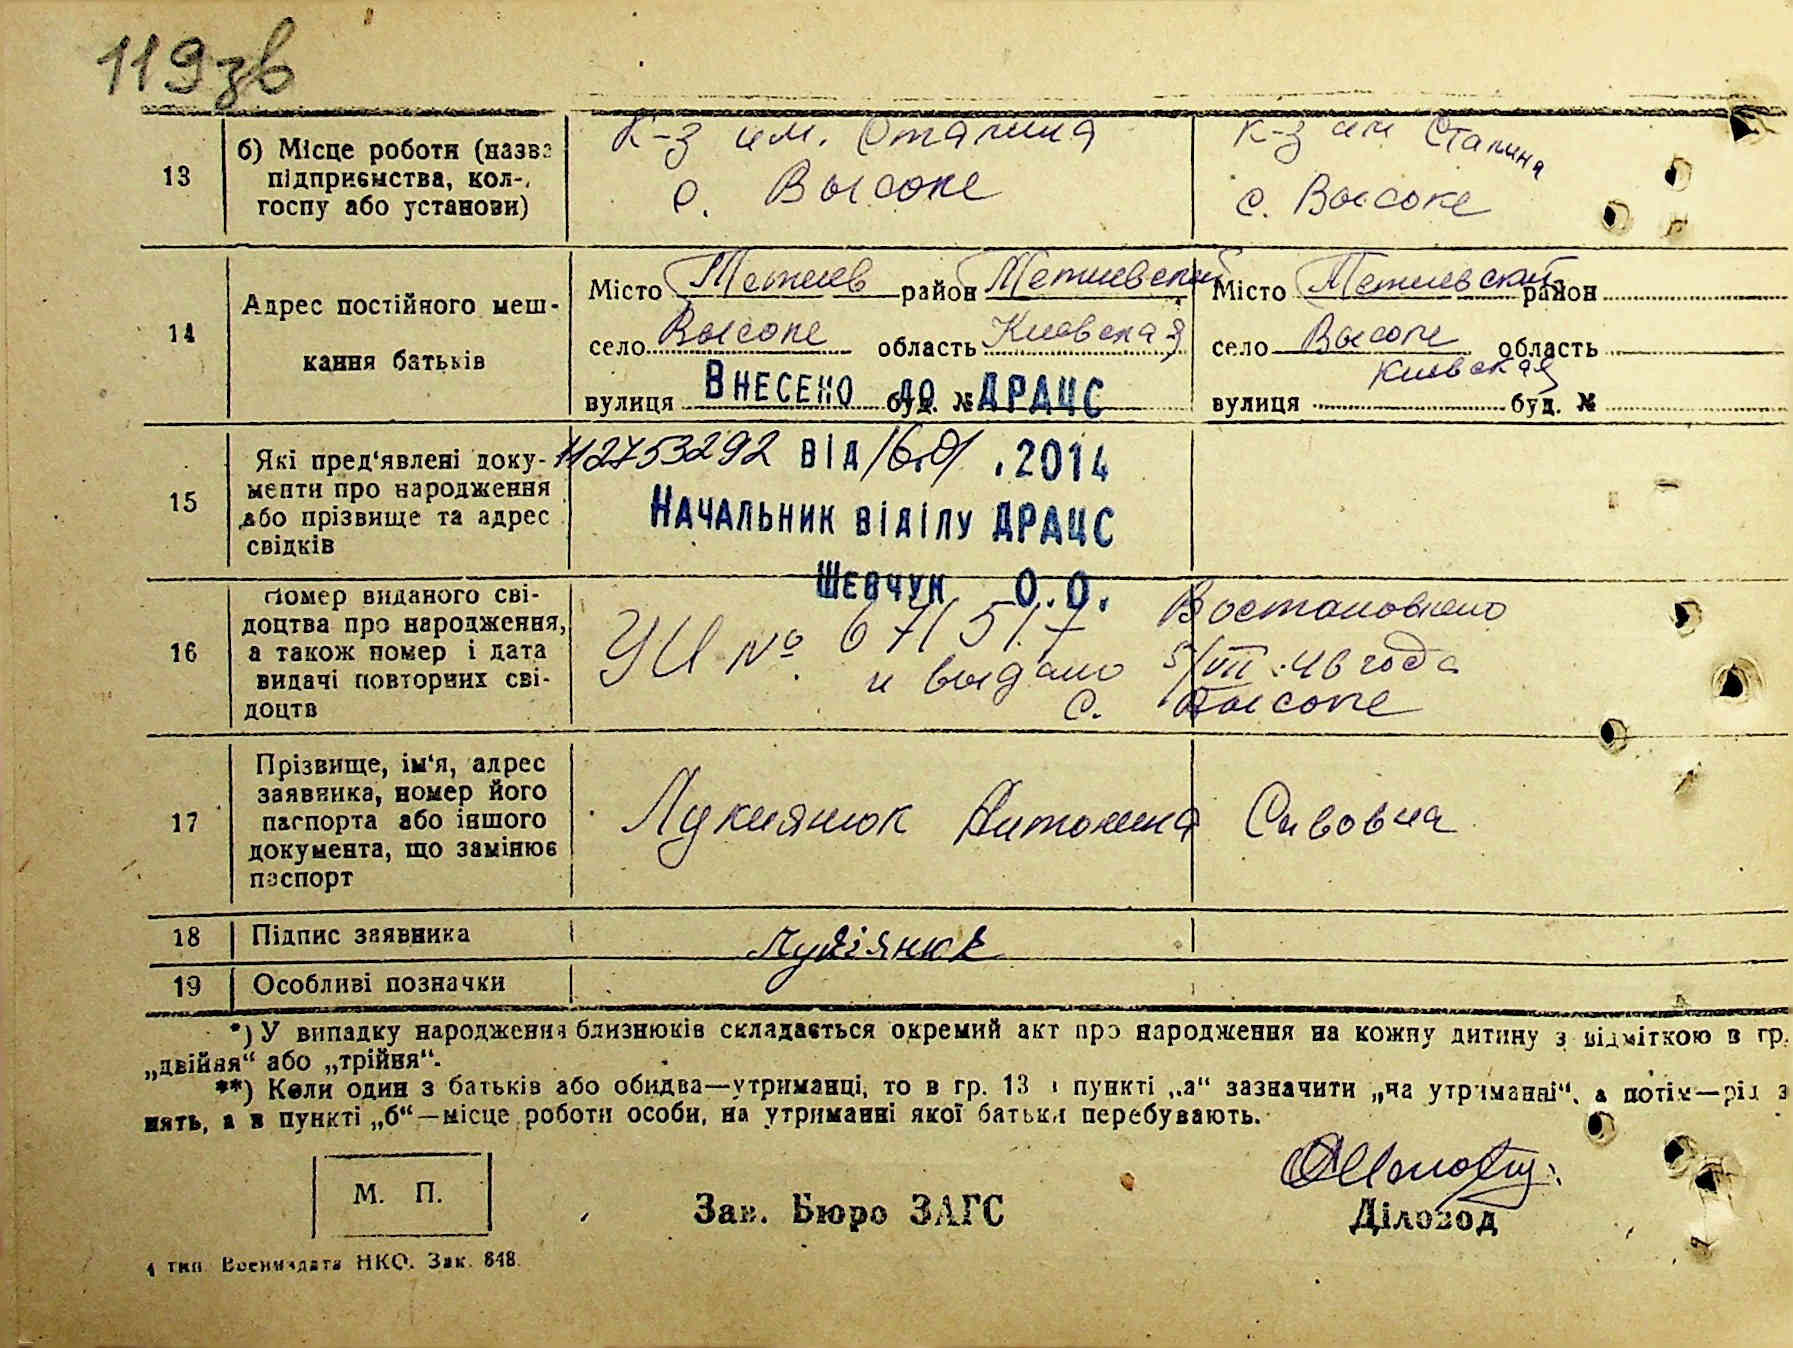 119зв
13
б) Місце роботи (назва
підприємства, кол-
госпу або установи)
К-з им. Сталина
с. Высоке
К-з им Сталина
с. Высоке
14
Адрес постійного меш-
кання батьків
Місто Тетиев район Тетиевский
село Высоке область Киевская
вулиця буд. №
Місто Тетиевский район
село Высоке область
Киевская
вулиця буд. №
Внесено до ДРАЦС
112753292 від 16.01.2014
Начальник відділу ДРАЦС
Шевчук О.О.
15
Які пред'явлені доку-
менти про народження
або прізвище та адрес
свідків
16
Номер виданого сві-
доцтва про народження,
а також номер і дата
видачі повторних сві-
доцтв
УИ № 671517 Востановлено
и выдано 5/VIII-46 года
с. Высоке
17
Прізвище, ім'я, адрес
заявника, номер його
паспорта або іншого
документа, що замінює
паспорт
Лукиянюк Антонина Савовна
18
Підпис заявника
19
Особливі позначки
*) У випадку народження близнюків складається окремий акт про народження на кожну дитину з відміткою в гр.
„двійня“ або „трійня“.
**) Коли один з батьків або обидва—утриманці, то в гр. 13 в пункті „а“ зазначити „на утриманні“, а потім—рід з
нять, а в пункті „б“—місце роботи особи, на утриманні якої батьки перебувають.
М. П.
Зав. Бюро ЗАГС
Діловод
4 тип. Воениздата НКО. Зак. 848.